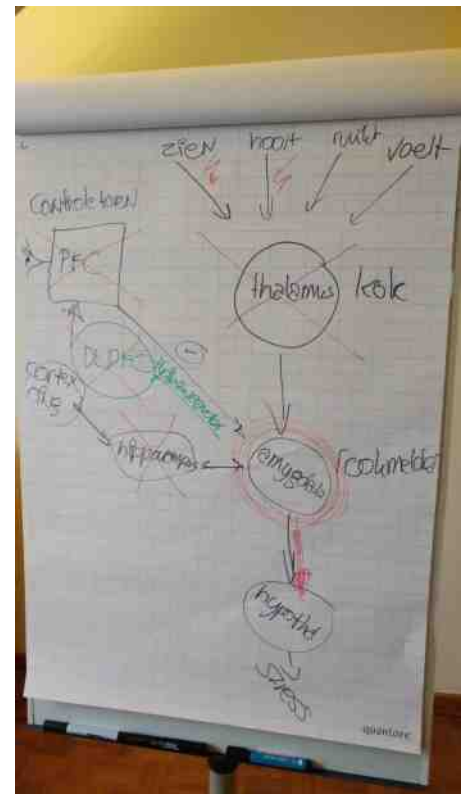 zien hoort ruikt voelt
Controletoren
PFC
thalamus kok
DLPFC
cortex
hippocampus
amygdala rookmelder
hypothal
stress
quantore